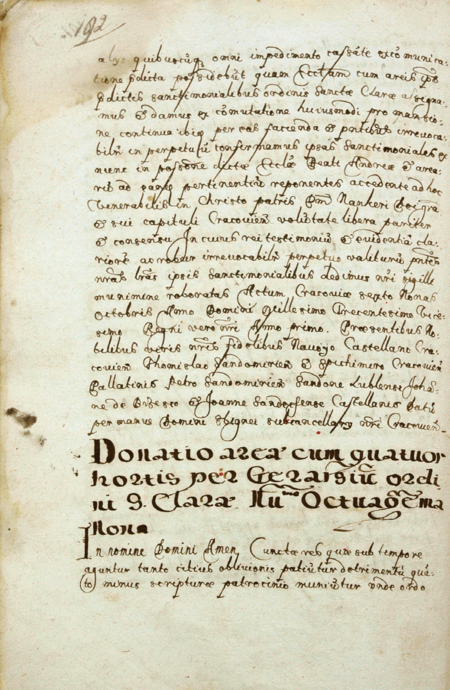 192
alys quibuscuq, omni impedimento cessāte excōmunica=
tione pdicta possidebūt quam Ecclām cum areis
pdictis sanctimonialibus ordinis sanctæ Claræ assigna
mus & damus ex cōmutatione huiusmodi pro mansio=
ne continua ibiq, per eas facienda & irrevoca
bilr in perpetuū confirmamus ipsas sanctimoniales ex
nunc in possōne dictæ Ecclæ Beati Andreæ & area=
rū ad eam pertinentiū reponentes accedente ad hoc
Venerabilis in Christo patris Dnī Nankeri
& sui capituli Cracovien̄ volūtate libera pariter
& consensu. In cuius rei testimoniū & evidentiā cla=
riorē ac robur irrevocabilr perpetuo valiturū
nrās lrās ipsis sanctimonialibus dedimus nrī sigilli
munimine roboratas Actum Cracoviæ sexto Nonas
Octobris Anno Domini Millesimo Trecentesimo Vice=
simo Regni vero nrī Anno primo. Præsentibus No=
bilibus viris nrīs fidelibus Navoyo Castellano Cra=
covien̄ Thomislao Sandomirien̄ & Spithimiro Cracovien̄
Pallatinis Petro Sandomirien̄ Sandone Lublensi Joha=
ne de & Joanne Sandecense Castellanis Datū
per manus Domini Sbignei subcancellary nrī Cracovien̄
Donatio areæ cum quatuor
hortis per Gerardū ordi
ni S. Claræ Nu Octuagema
Nona
In nomine Domini Amen, Cunctæ res quæ sub tempore
aguntur tanto citius oblivionis patiūtur detrimentū quā=
to minus scripturæ patrocinio muniūtur unde ordo